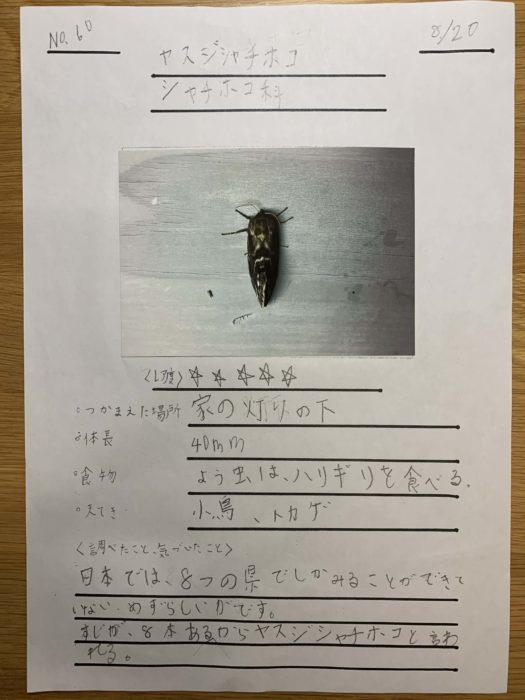 No.60
8/20
ヤスジシャチホコ
シャチホコ科
〈レア度〉☆☆☆☆☆
○つかまえた場所 家の灯りの下
○体長 40mm
○食物 よう虫は、ハリギリを食べる。
○天てき 小鳥、トカゲ
〈調べたこと、気づいたこと〉
日本では、8つの県でしかみることができて
いない、めずらしいガです。
すじが、8本あるからヤスジシャチホコと言わ
れる。